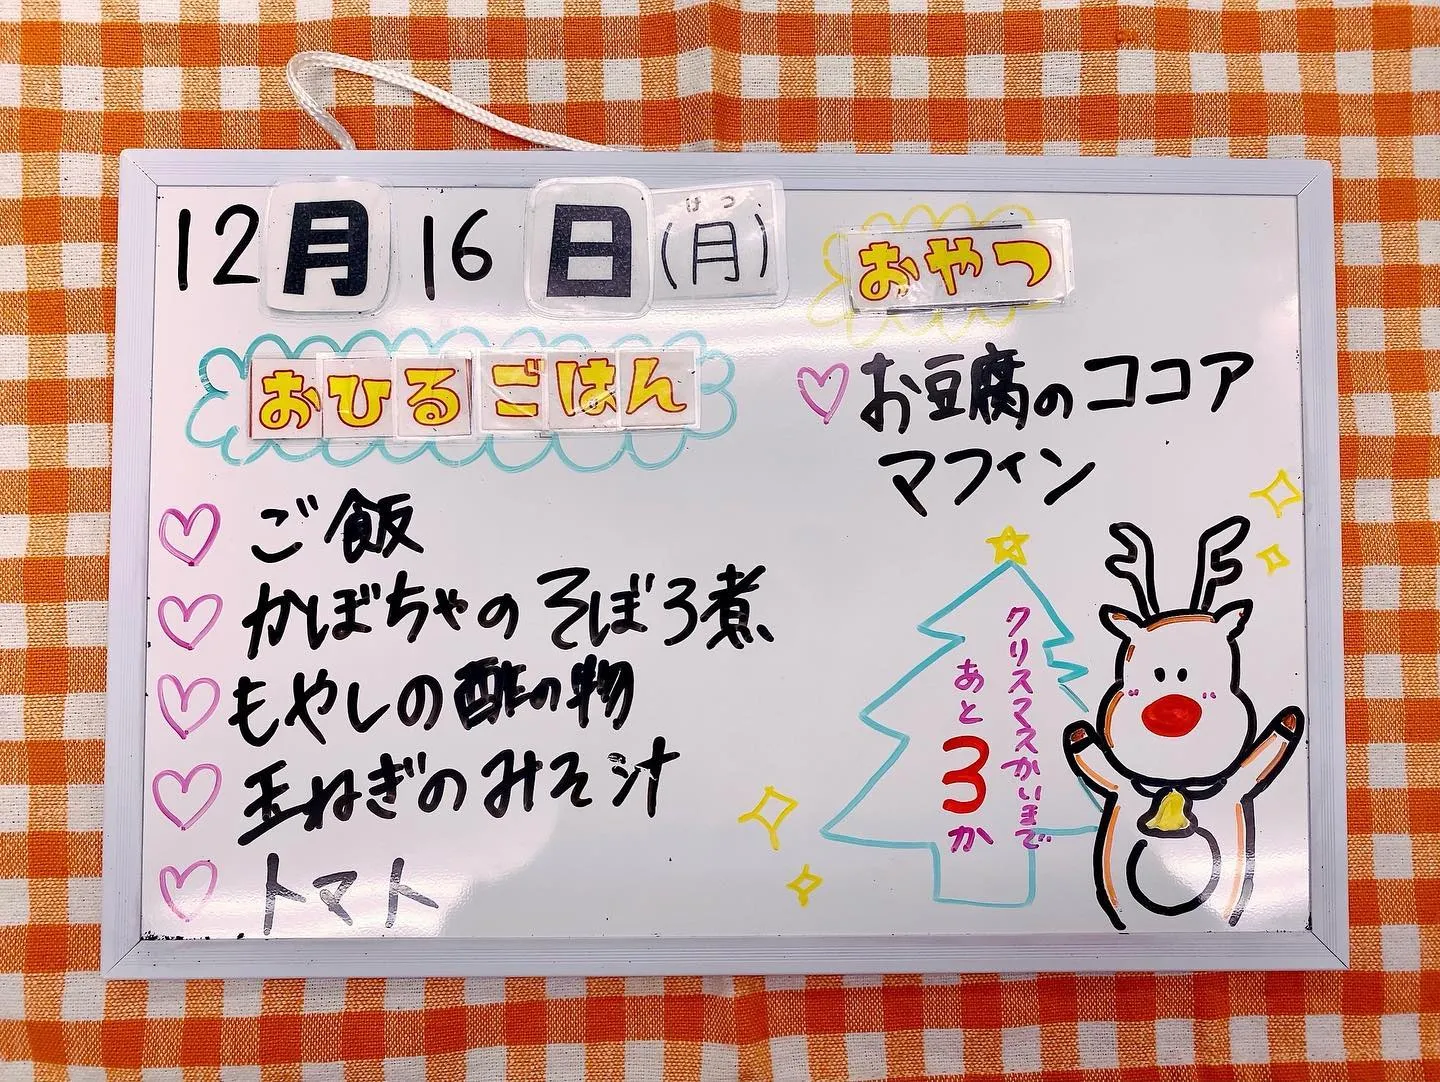 12月16日(月)
げつ
おひるごはん
ご飯
かぼちゃのそぼろ煮
もやしの酢の物
玉ねぎのみそ汁
トマト
おやつ
お豆腐のココア
マフィン
クリスマスかいまで
あと3か